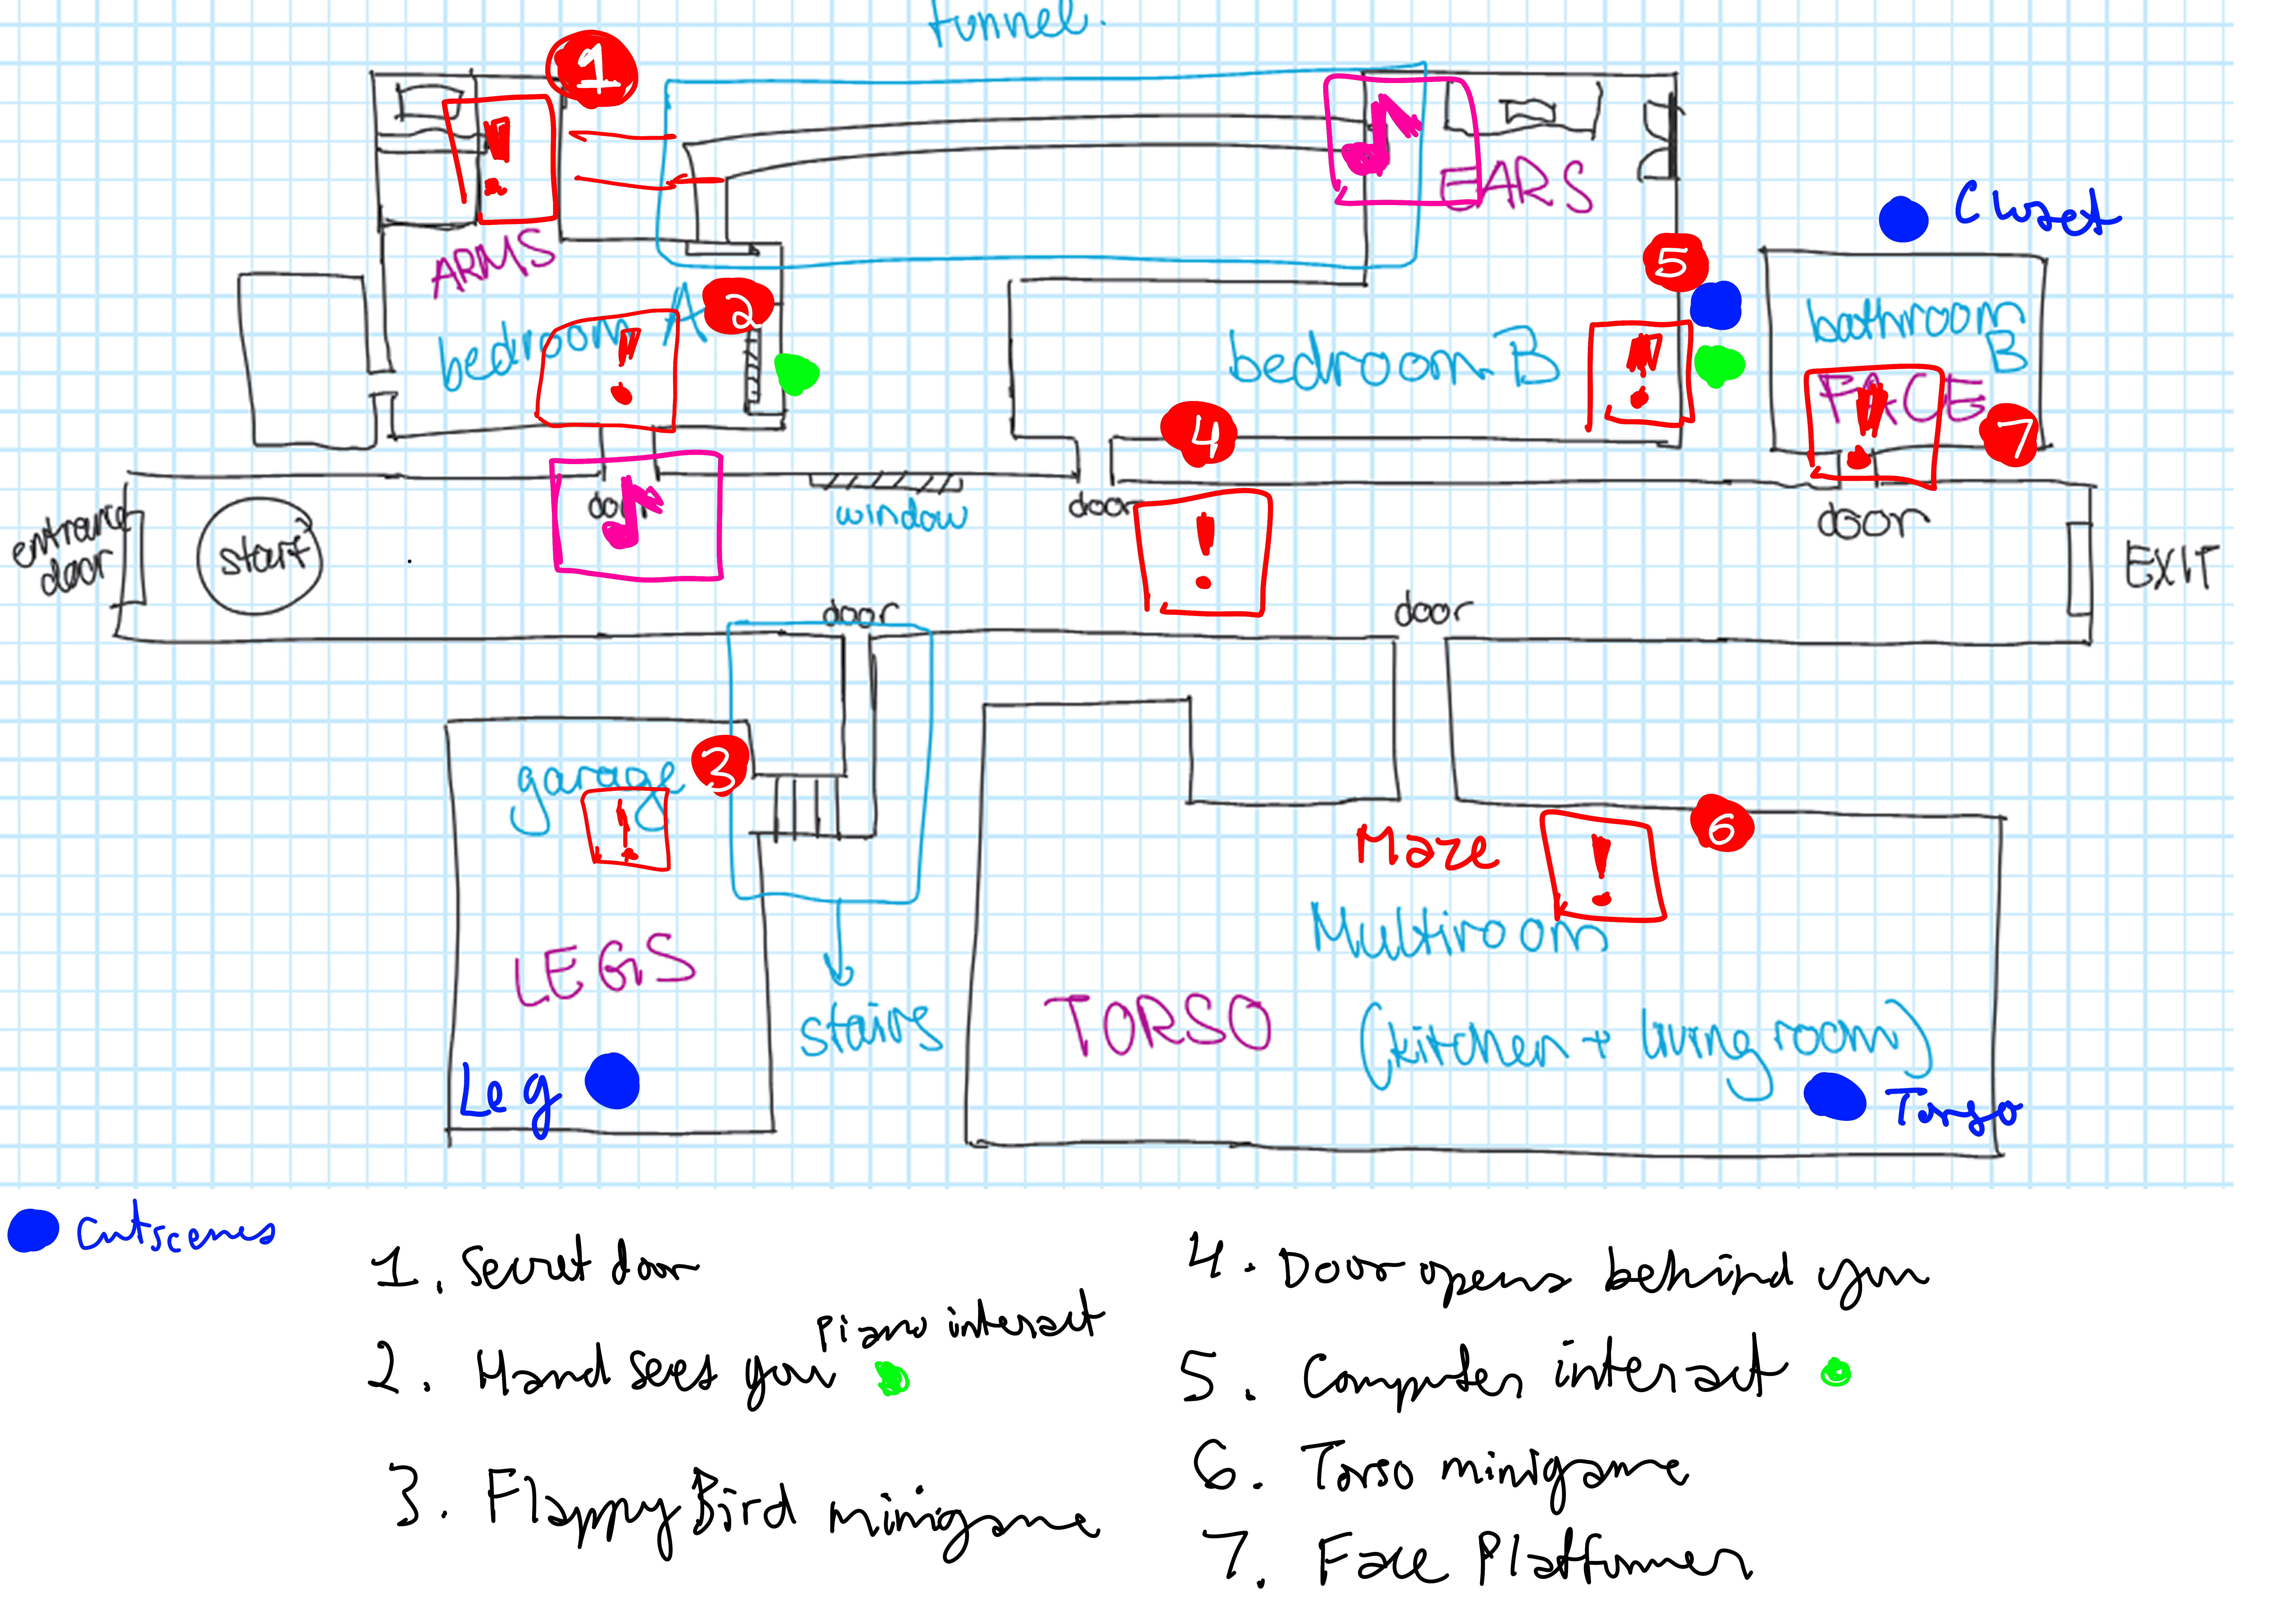 tunnel.
1
EARS
Closet
ARMS
5
2
bedroom A
bedroom B
bathroom
B
FACE
4
7
door
window
door
door
entrance
door
start
EXIT
door
door
garage
3
6
Maze
Multiroom
LEGS
TORSO
stairs
(kitchen + living room)
Leg
Torso
Cutscenes
1. Secret door
2. Hand sees you
Piano interact
3. Flappy Bird minigame
4. Door opens behind you
5. Computer interact
6. Torso minigame
7. Face Platformer